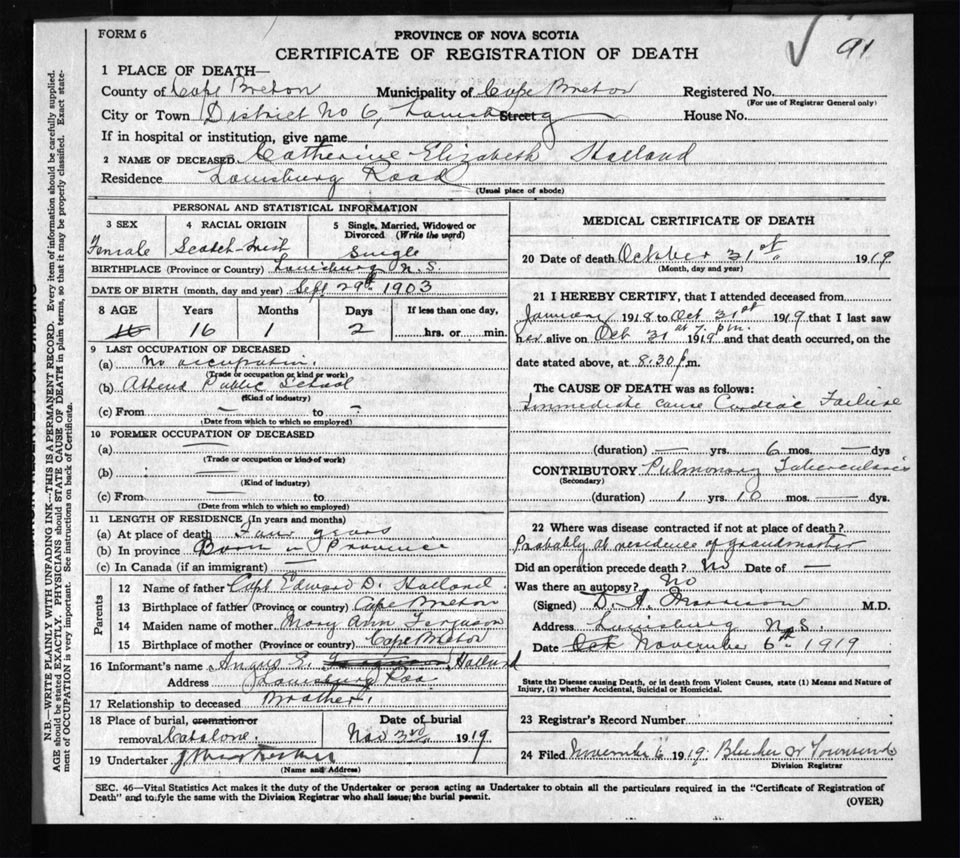 FORM 6
PROVINCE OF NOVA SCOTIA
91
CERTIFICATE OF REGISTRATION OF DEATH
1 PLACE OF DEATH—
County of Cape Breton Municipality of Cape Breton Registered No.
(For use of Registrar General only)
City or Town District No 6, Louisburg Street House No.
If in hospital or institution, give name
2 NAME OF DECEASED Catherine Elizabeth Holland
Residence Louisburg Road
(Usual place of abode)
PERSONAL AND STATISTICAL INFORMATION
3 SEX 4 RACIAL ORIGIN 5 Single, Married, Widowed or Divorced (Write the word)
Female Scotch-Irish Single
BIRTHPLACE (Province or Country) Louisburg N.S.
DATE OF BIRTH (month, day and year) Sept 29th 1903
8 AGE Years Months Days If less than one day,
16 16 1 2 hrs. or min.
9 LAST OCCUPATION OF DECEASED
(a) No occupation.
(Trade or occupation or kind of work)
(b) Attend Public School
(Kind of industry)
(c) From — to —
(Date from which to which so employed)
10 FORMER OCCUPATION OF DECEASED
(a) —
(Trade or occupation or kind of work)
(b) —
(Kind of industry)
(c) From — to
(Date from which to which so employed)
11 LENGTH OF RESIDENCE (In years and months)
(a) At place of death Four years
(b) In province Born in Province
(c) In Canada (if an immigrant) —
Parents
12 Name of father Capt Edward D. Holland.
13 Birthplace of father (Province or country) Cape Breton
14 Maiden name of mother Mary Ann Ferguson
15 Birthplace of mother (Province or country) Cape Breton
16 Informant's name Angus E. Holland
Address Louisburg Roa
17 Relationship to deceased Brother.
18 Place of burial, cremation or removal Catalone. Date of burial Nov 3rd 1919
19 Undertaker
(Name and Address)
MEDICAL CERTIFICATE OF DEATH
20 Date of death October 31st 1919
(Month, day and year)
21 I HEREBY CERTIFY, that I attended deceased from
January 1918 to Oct 31st 1919 that I last saw
her alive on Oct 31st at 7 p.m. 1919 and that death occurred, on the
date stated above, at 8.30 p.m.
The CAUSE OF DEATH was as follows:
Immediate cause Cardiac Failure
(duration) — yrs. 6 mos. — dys
CONTRIBUTORY Pulmonary Tuberculosis
(Secondary)
(duration) 1 yrs. 10 mos. — dys.
22 Where was disease contracted if not at place of death?
Probably at residence of grandmother
Did an operation precede death? No Date of —
Was there an autopsy? No
(Signed) D. A. Morrison M.D.
Address Louisburg N.S.
Date Oct November 6th 1919
State the Disease causing Death, or in death from Violent Causes, state (1) Means and Nature of
Injury, (2) whether Accidental, Suicidal or Homicidal.
23 Registrar's Record Number
24 Filed November 6 1919
Division Registrar
SEC. 46—Vital Statistics Act makes it the duty of the Undertaker or person acting as Undertaker to obtain all the particulars required in the "Certificate of Registration of
Death" and to fyle the same with the Division Registrar who shall issue the burial permit.
(OVER)
N.B.—WRITE PLAINLY WITH UNFADING INK—THIS IS A PERMANENT RECORD. Every item of information should be carefully supplied.
AGE should be stated EXACTLY. PHYSICIANS should STATE CAUSE OF DEATH in plain terms, so that it may be properly classified. Exact state-
ment of OCCUPATION is very important. See instructions on back of Certificate.